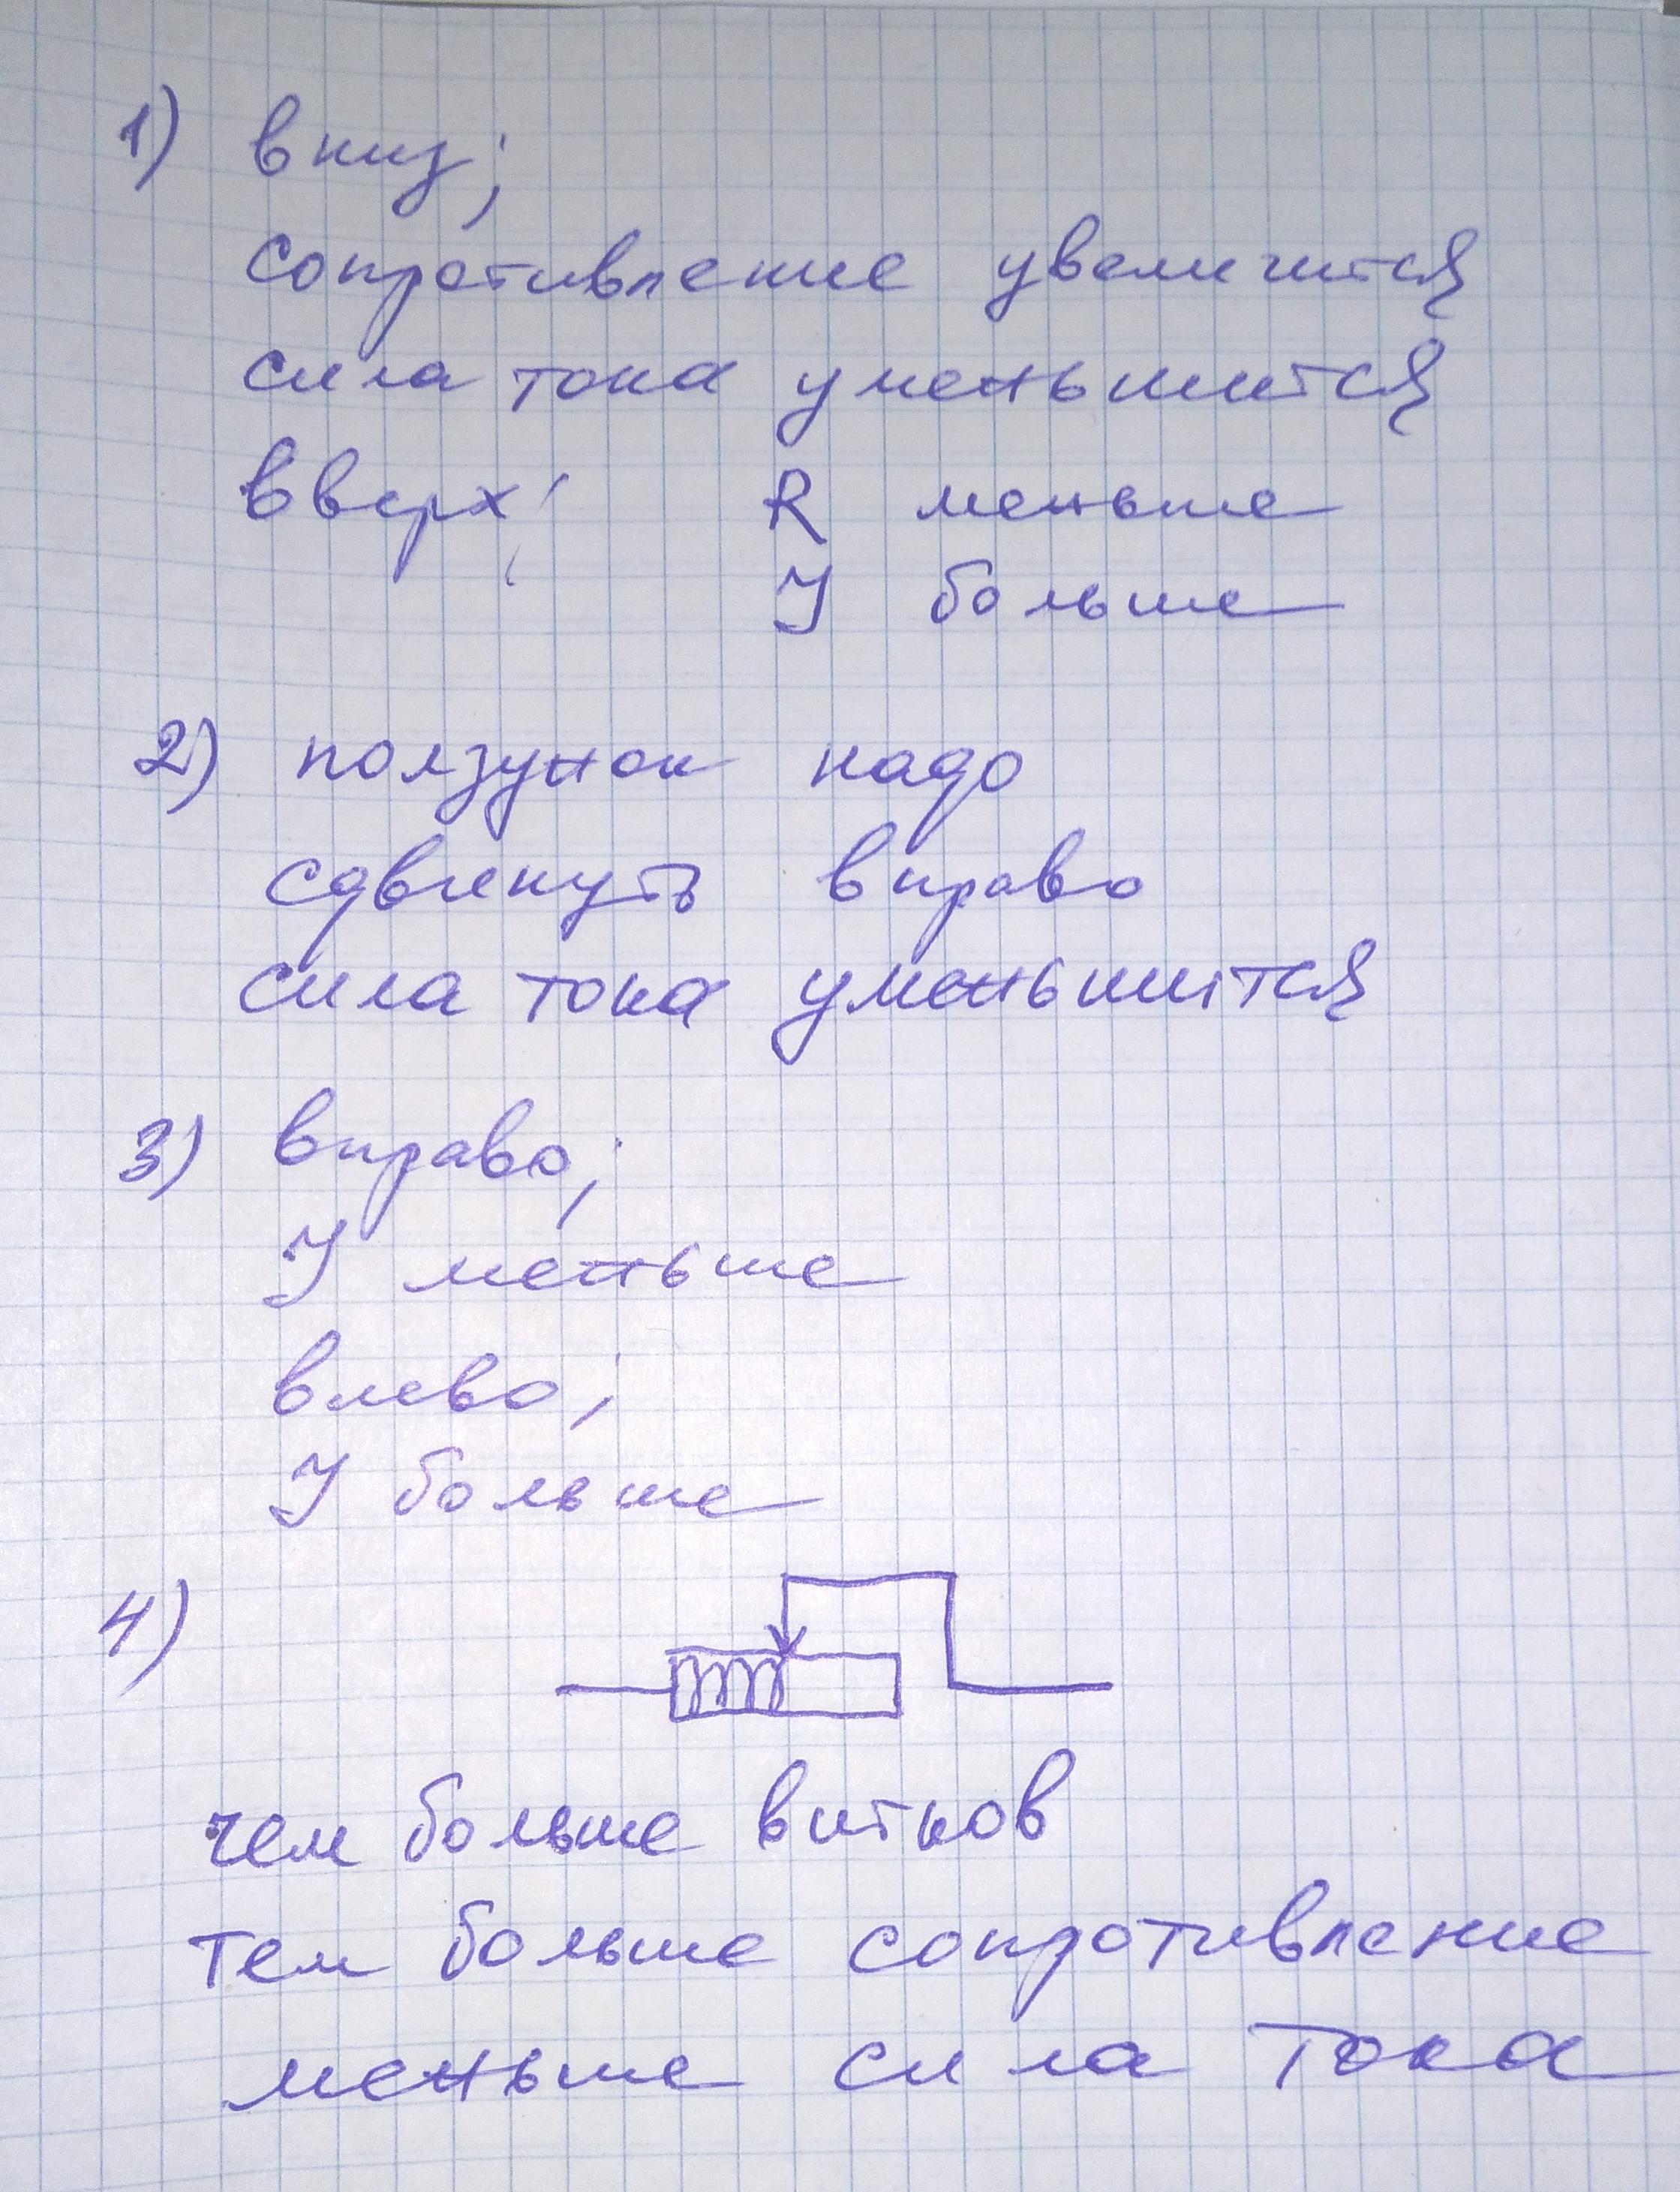 1) вниз;
сопротивление увеличится
сила тока уменьшится
вверх; R меньше
I больше
2) ползунок надо
сдвинуть вправо
сила тока уменьшится
3) вправо;
I меньше
влево;
I больше
4)
чем больше витков
тем больше сопротивление
меньше сила тока